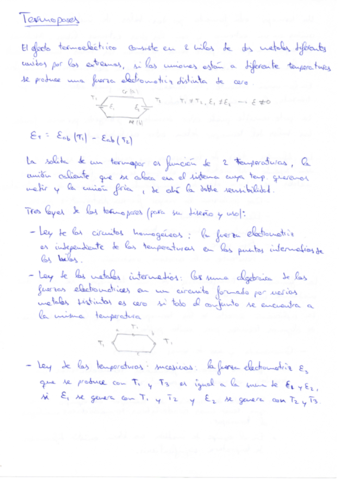 Termopares
El efecto termoeléctrico consiste en 2 hilos de dos metales diferentes
unidos por los extremos, si las uniones están a diferente temperatura
se produce una fuerza electromotriz distinta de cero
T₁
E₁ = E_AB (T₁) - E_AB (T₂)
La salida de un termopar es función de 2 temperaturas, la
unión caliente que se ubica en el sistema cuya temp. queremos
medir y la unión fría, de ahí la doble sensibilidad.
Tres leyes de los termopares (para su diseño y uso):
- Ley de los circuitos homogéneos: la fuerza electromotriz
es independiente de las temperaturas en los puntos intermedios de
los hilos.
- Ley de los metales intermedios: la suma algebraica de las
fuerzas electromotrices en un circuito formado por varios
metales distintos es cero si todo el conjunto se encuentra a
la misma temperatura
T₁ T₁
- Ley de las temperaturas sucesivas: la fuerza electromotriz E₃
que se produce con T₁ y T₃ es igual a la suma de E₁ y E₂,
si E₁ se genera con T₁ y T₂ y E₂ se genera con T₂ y T₃.